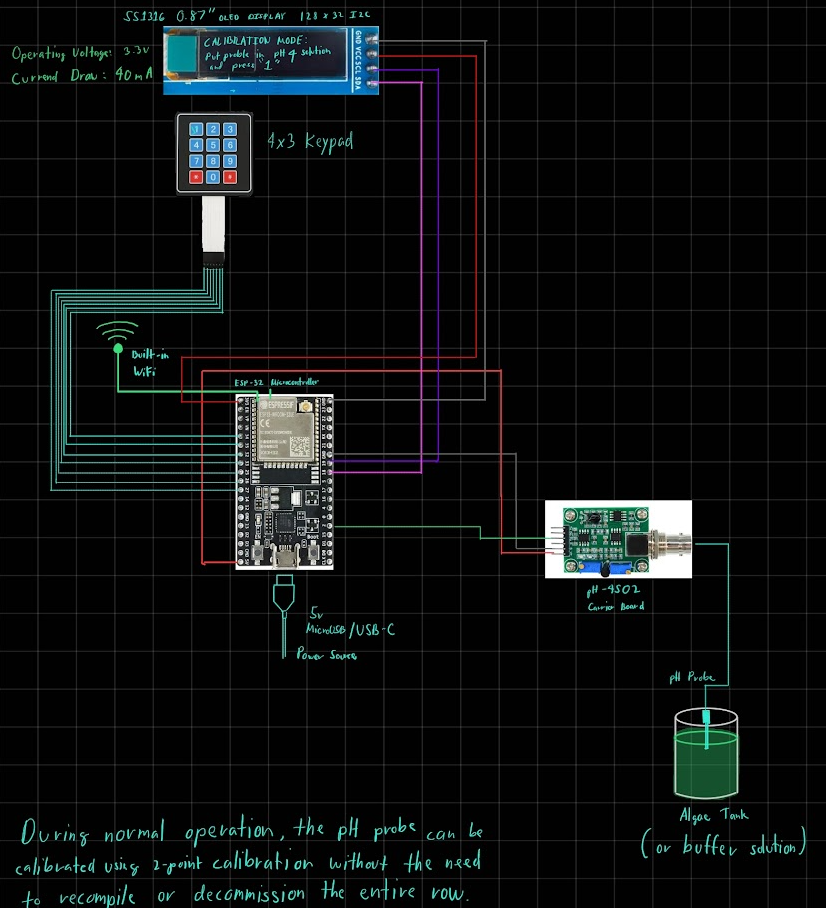 SS1316 0.87" OLED DISPLAY 128 x 32 I2C
Operating Voltage: 3.3v
Current Draw: 40mA
CALIBRATION MODE:
Put probe in pH 4 solution
and press "1"
GND VCC SCL SDA
1 2 3
4 5 6
7 8 9
* 0
4x3 Keypad
Built-in
WiFi
ESP-32 Microcontroller
ESPRESSIF
CE
Boot
5v
MicroUSB/USB-C
Power Source
pH-4502
Carrier Board
pH Probe
Algae Tank
(or buffer solution)
During normal operation, the pH probe can be
calibrated using 2-point calibration without the need
to recompile or decommission the entire row.